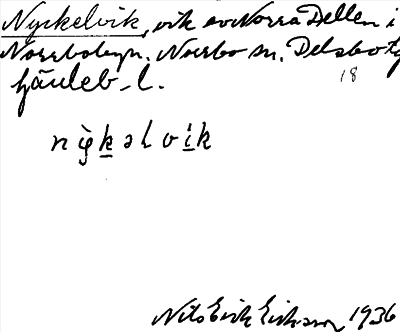 Nyckelvik, vik av Norra Dellen i
Norrbobyn. Norrbo sn. Delsbo tg
18
Gävleb. l.
nỳkəlvik
Nils Erik Eriksson 1936